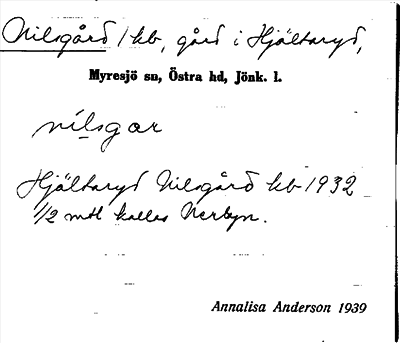 Nilsgård / kb, gård i Hjältaryd,
Myresjö sn, Östra hd, Jönk. l.
nilsgar
Hjältaryd Nilsgård kb 1932
1/2 mtl kallas Nerbyn.
Annalisa Anderson 1939